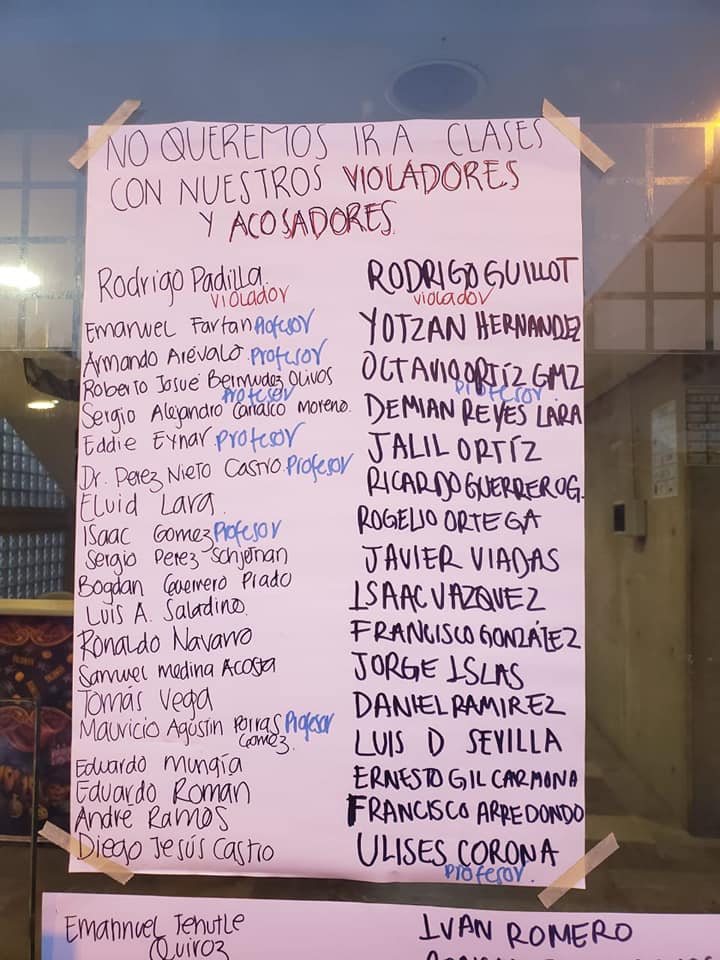 NO QUEREMOS IR A CLASES
CON NUESTROS VIOLADORES
Y ACOSADORES.
Rodrigo Padilla
violador
Emanuel Fartan Profesor
Armando Arévalo Profesor
Roberto Josué Bermudez Olivos
Profesor
Sergio Alejandro Carrasco Moreno.
Eddie Eynar Profesor
Dr. Perez Nieto Castro. Profesor
Eluid Lara.
Isaac Gomez Profesor
Sergio Perez Schjetnan
Bogdan Guerrero Prado
Luis A. Saladino.
Ronaldo Navarro
Samuel Medina Acosta
Tomás Vega
Mauricio Agustin Porras Profesor
Gomez.
Eduardo Mungía
Eduardo Roman
Andre Ramos
Diego Jesús Castro
RODRIGO GUILLOT
violador
YOTZAN HERNANDEZ
OCTAVIO ORTÍZ GMZ
Profesor
DEMIAN REYES LARA
JALIL ORTÍZ
RICARDO GUERRERO G.
ROGELIO ORTEGA
JAVIER VIADAS
ISAAC VAZQUEZ
FRANCISCO GONZÁLEZ
JORGE ISLAS
DANIEL RAMIREZ
LUIS D SEVILLA
ERNESTO GIL CARMONA
FRANCISCO ARREDONDO
ULISES CORONA
Profesor
Emannuel Tehutle
Quiroz
IVAN ROMERO